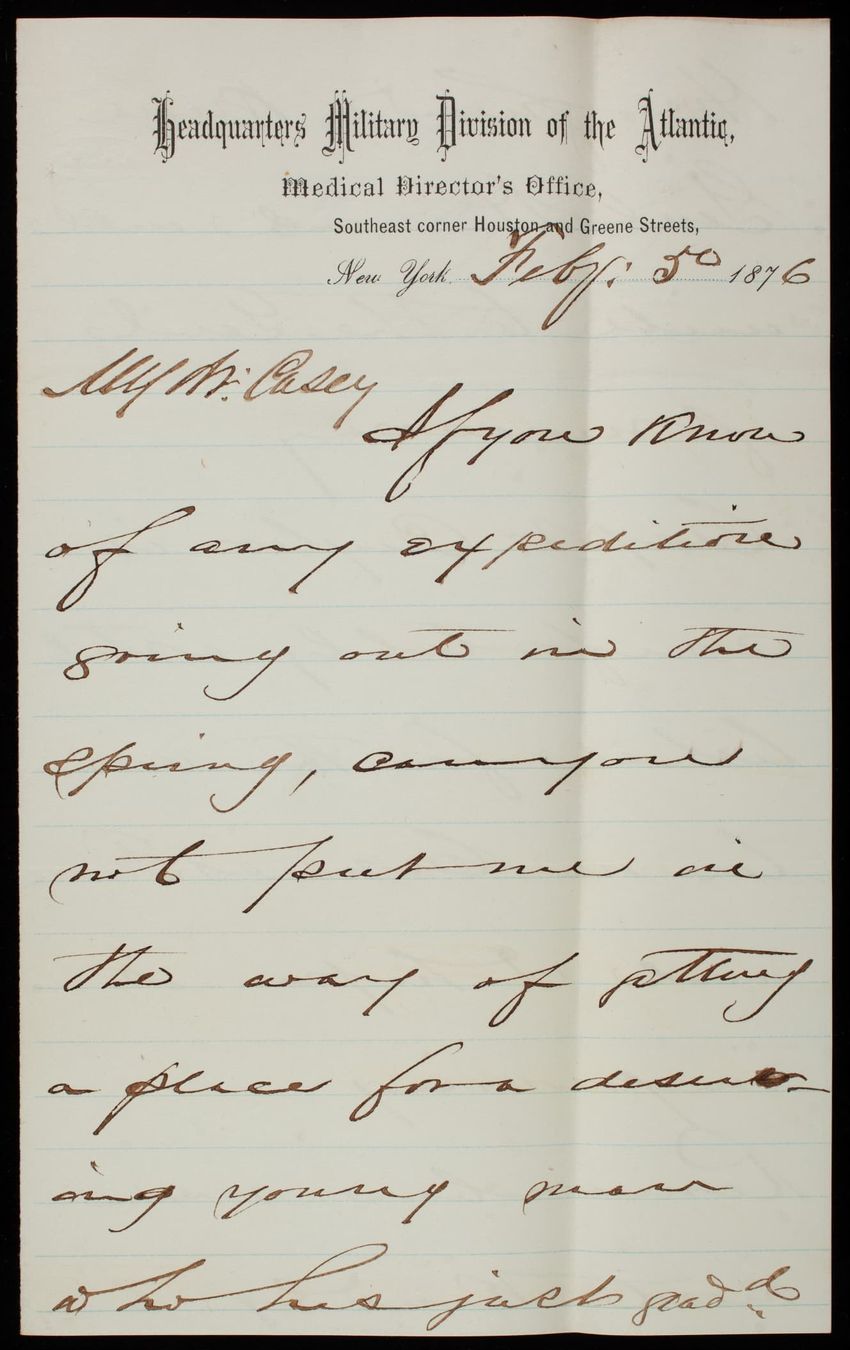 Headquarters Military Division of the Atlantic,
Medical Director's Office,
Southeast corner Houston and Greene Streets,
New York. Feby: 5º 1876
My Dr. Casey
If you know
of any expedition
going out in the
spring, can you
not put me in
the way of getting
a place for a deserv-
ing young man
who has just grad.d